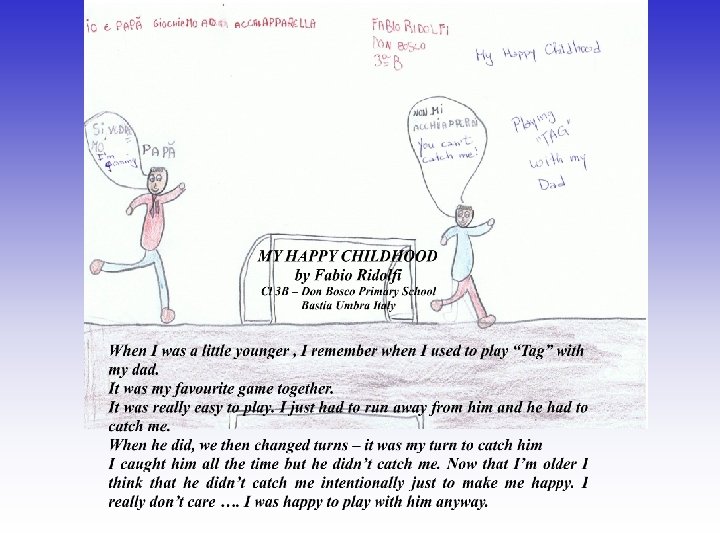 IO E PAPÁ GIOCHIAMO AD ACCHIAPPARELLA
FABIO RIDOLFI
DON BOSCO
3ª B
My Happy Childhood
SI VEDRÁ
MO'
I'm coming
PAPÁ
NON MI
You can't
catch me!
Playing
"TAG"
with my
Dad
MY HAPPY CHILDHOOD
by Fabio Ridolfi
Cl 3B – Don Bosco Primary School
Bastia Umbra Italy
When I was a little younger , I remember when I used to play “Tag” with
my dad.
It was my favourite game together.
It was really easy to play. I just had to run away from him and he had to
catch me.
When he did, we then changed turns – it was my turn to catch him
I caught him all the time but he didn’t catch me. Now that I’m older I
think that he didn’t catch me intentionally just to make me happy. I
really don’t care …. I was happy to play with him anyway.